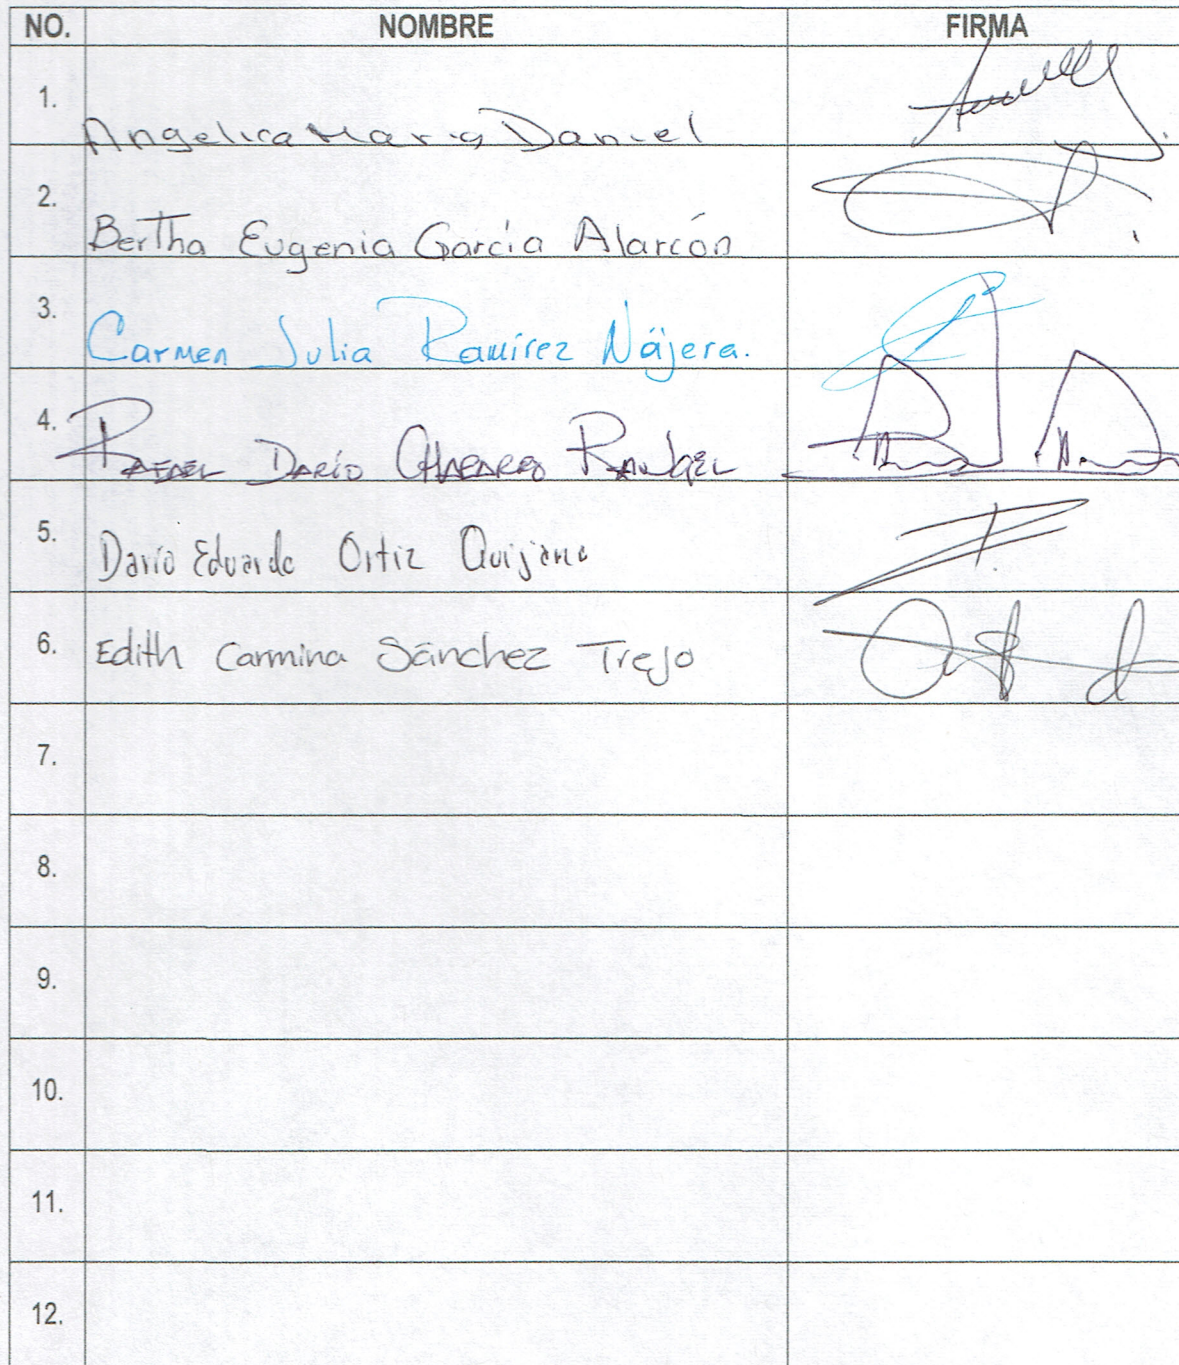 NO. NOMBRE FIRMA
1. Angelica Maria Daniel
2. Bertha Eugenia García Alarcón
3. Carmen Julia Ramírez Nájera.
4. Rafael Darío Chaparro Rangel
5. Darío Eduardo Ortiz Quijano
6. Edith Carmina Sánchez Trejo
7.
8.
9.
10.
11.
12.